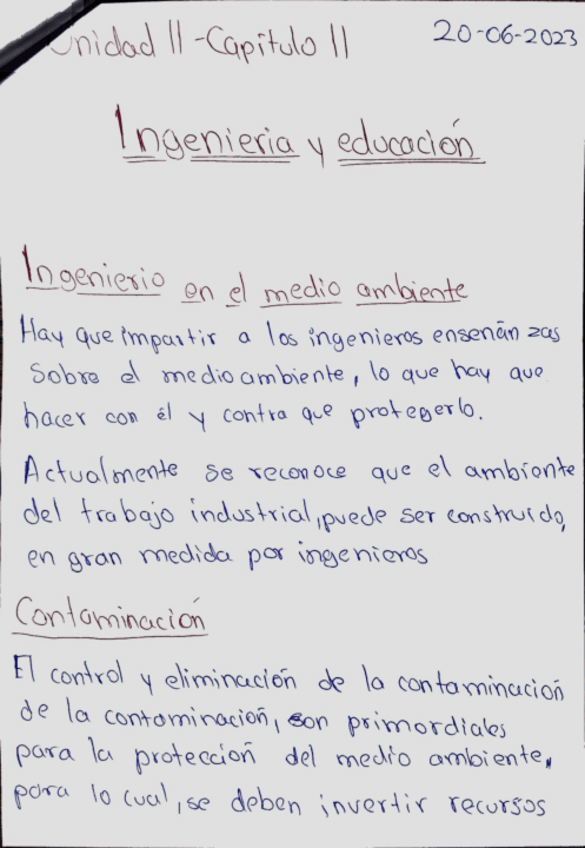 Unidad II - Capítulo II
20-06-2023
Ingenieria y educación
Ingenierio en el medio ambiente
Hay que impartir a los ingenieros enseñan zas
Sobre el medio ambiente, lo que hay que
hacer con él y contra que protegerlo.
Actualmente se reconoce que el ambiente
del trabajo industrial, puede ser construido,
en gran medida por ingenieros
Contaminación
El control y eliminación de la contaminación
de la contaminación, son primordiales
para la protección del medio ambiente,
para lo cual, se deben invertir recursos